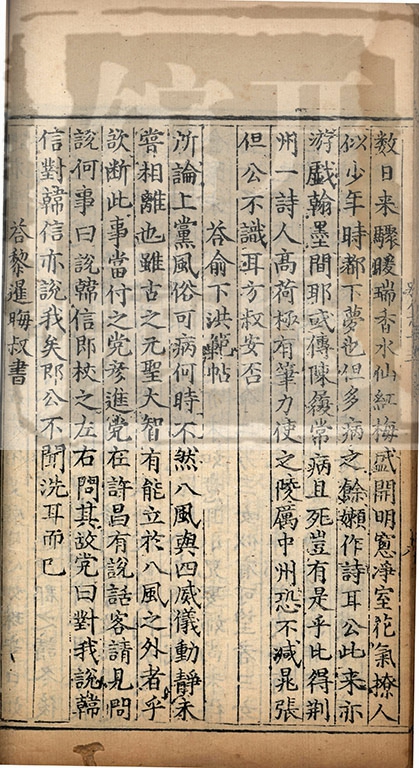 數日来驟暖瑞香水仙紅梅盛開明窓淨室花氣撩人
似少年時都下夢也但多病之餘嬾作詩耳公比来亦
游戲翰墨間耶或傳陳履常病且死豈有是乎比得荆
州一詩人髙荷極有筆力使之陵厲中州恐不减晁張
但公不識耳方叔安否
荅俞下洪範帖
所論上黨風俗可病何時不然八風與四威儀動靜未
嘗相離也雖古之元聖大智有能立於八風之外者乎
欲断此事當付之党彦進党在許昌有說話客請見問
說何事曰說韓信即杖之左右問其故党曰對我說韓
信對韓信亦說我矣郎公不聞洗耳而已
荅黎暹晦叔書